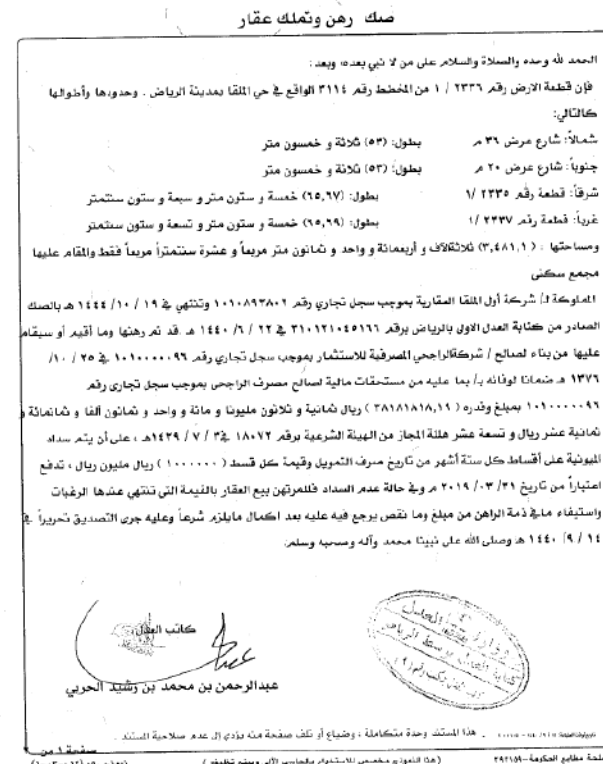 صك رهن وتملك عقار
الحمد لله وحده والصلاة والسلام على من لا نبي بعده، وبعد:
فإن قطعة الارض رقم ٢٣٣٦ / ١ من المخطط رقم ٣١١٤ الواقع في حي الملقا بمدينة الرياض . وحدودها وأطوالها
كالتالي:
شمالاً: شارع عرض ٣٦ م بطول: (٥٣) ثلاثة و خمسون متر
جنوباً: شارع عرض ٢٠ م بطول: (٥٣) ثلاثة و خمسون متر
شرقاً: قطعة رقم ٢٣٣٥ /١ بطول: (٦٥,٦٧) خمسة و ستون متر و سبعة و ستون سنتمتر
غرباً: قطعة رقم ٢٣٣٧ /١ بطول: (٦٥,٦٩) خمسة و ستون متر و تسعة و ستون سنتمتر
ومساحتها : (٣,٤٨١,١) ثلاثةالآف و أربعمائة و واحد و ثمانون متر مربعاً و عشرة سنتمتراً مربعاً فقط والمقام عليها
مجمع سكني
المملوكة لـ/ شركة أول الملقا العقارية بموجب سجل تجاري رقم ١٠١٠٨٩٣٨٠٢ وتنتهي في ١٩ / ١٠ / ١٤٤٤ هـ بالصك
الصادر من كتابة العدل الاولى بالرياض برقم ٣١٠١٢١٠٤٥١٦٦ في ٢٢ / ٦ / ١٤٤٠ هـ قد تم رهنها وما أقيم أو سيقام
عليها من بناء لصالح / شركةالراجحي المصرفية للاستثمار بموجب سجل تجاري رقم ١٠١٠٠٠٠٠٩٦ في ٢٥ / ١٠ /
١٣٧٦ هـ ضمانا لوفائه بـ/ بما عليه من مستحقات مالية لصالح مصرف الراجحي بموجب سجل تجاري رقم
١٠١٠٠٠٠٠٩٦ بمبلغ وقدره (٣٨١٨١٨١٨,١٩) ريال ثمانية و ثلاثون مليونا و مائة و واحد و ثمانون ألفا و ثمانمائة و
ثمانية عشر ريال و تسعة عشر هللة المجاز من الهيئة الشرعية برقم ١٨٠٧٢ في ٣ / ٧ / ١٤٢٩هـ ، على أن يتم سداد
المديونية على أقساط كل ستة أشهر من تاريخ صرف التمويل وقيمة كل قسط (١٠٠٠٠٠٠) ريال مليون ريال ، تدفع
اعتباراً من تاريخ ٣١ /٠٣ /٢٠١٩ م وفي حالة عدم السداد فللمرتهن بيع العقار بالقيمة التي تنتهي عندها الرغبات
واستيفاء مافي ذمة الراهن من مبلغ وما نقص يرجع فيه عليه بعد اكمال مايلزم شرعاً وعليه جرى التصديق تحريراً في
١٤ /٩ / ١٤٤٠ هـ وصلى الله على نبينا محمد وآله وصحبه وسلم.
كاتب العدل
عبدالرحمن بن محمد بن رشيد الحربي
هذا المستند وحدة متكاملة ، وضياع أو تلف صفحة منه يؤدي إلى عدم صلاحية المستند .
صفحة ١ من
مصلحة مطابع الحكومة-٢٩٢١٥٩
(هذا النموذج مخصص للاستخدام بالحاسب الآلي ويمنع تغليفه)